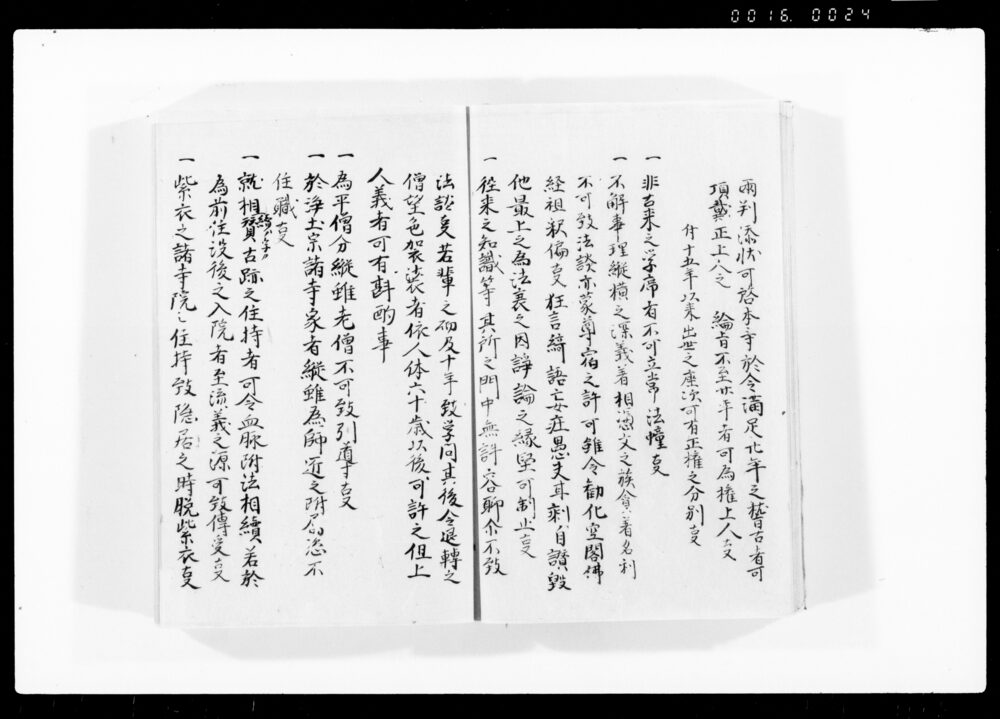 0016. 0024
両判添状可啓本寺於令満足廿年之䅲古者可
頂戴正上人之 綸旨不至廿年者可為権上人支
付十五年以来出世之座次可有正権之分別支
一 非古来之学席有不可立常法幢支
一 不解事理縦横之深義着相憑文之族貪着名利
不可致法談亦蒙尊宿之許可雖令勧化空閣佛
経祖釈偏支狂言綺語妄庄愚夫耳剰自讃毀
他最上之為法衰之因諍論之縁堅可制止支
一 従来之知識等其所之門中無許容聊尓不致
法談支若輩之砌及十年致学问其後令退轉之
僧望色袈裟者依人体六十歳以後可許之但上
人義者可有斟酌事
一 為平僧分縦雖老僧不可致引導支
一 於浄土宗諸寺家者縦雖為師近之附属恣不
住職支
一 就相續古跡之住持者可令血脉附法相續若於
為前住没後之入院者至流義之源可致傳受支
一 紫衣之諸寺院之住持致隠居之時脱紫衣支